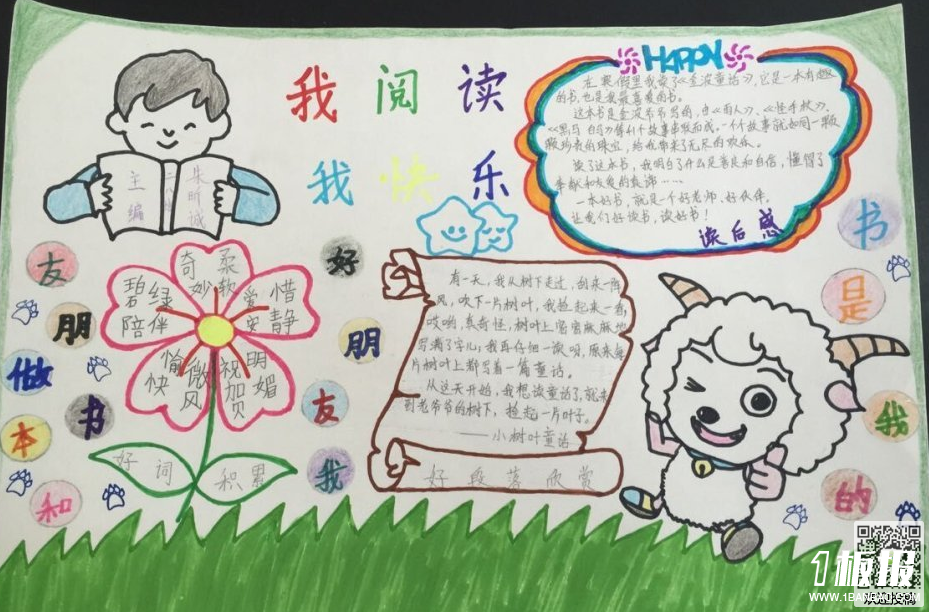 我阅读
我快乐
HAPPY
在寒假里我读了《金波童话》,它是一本有趣
的书,也是我最喜爱的书。
这本书是金波爷爷写的,由《雨人》、《怪手杖》、
《黑马 白马》等41个故事串联而成,一个个故事就如同一颗
颗珍贵的珠宝,给我带来了无尽的欢乐。
读了这本书,我明白了什么是善良和自信,懂得了
奉献和友爱的真谛……
一本好书,就是一个好老师、好伙伴。
让我们好读书,读好书!
读后感
主编
朱昕诚
奇妙
柔软
碧绿
陪伴
爱惜
安静
愉快
微风
祝加贝
明媚
好词
积累
有一天,我从树下走过,刮来一阵
风,吹下一片树叶,我捡起来一看,
哎哟,真奇怪,树叶上密密麻麻地
写满了字儿;我再仔细一读呗,原来每
片树叶上都写着一篇童话。
从这天开始,我想读童话了,就来
到老爷爷的树下,捡起一片叶子。
——小树叶童话
好段落欣赏
友
朋
做
书
本
和
好
朋
友
我
书
是
我
的
1板报
WWW.1BANBAO.COM
欢迎投稿